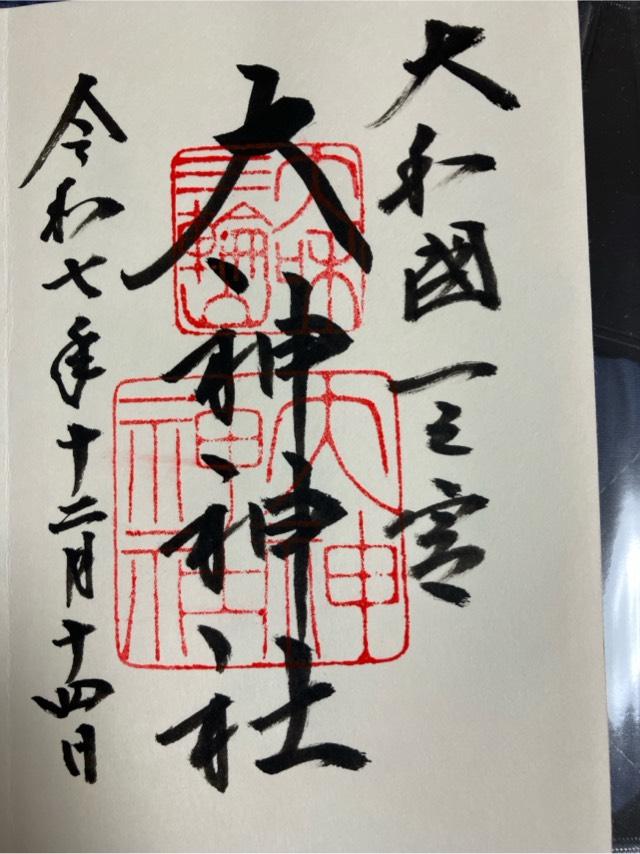 大和國一之宮
大神神社
令和七年十二月十四日
大神
神社